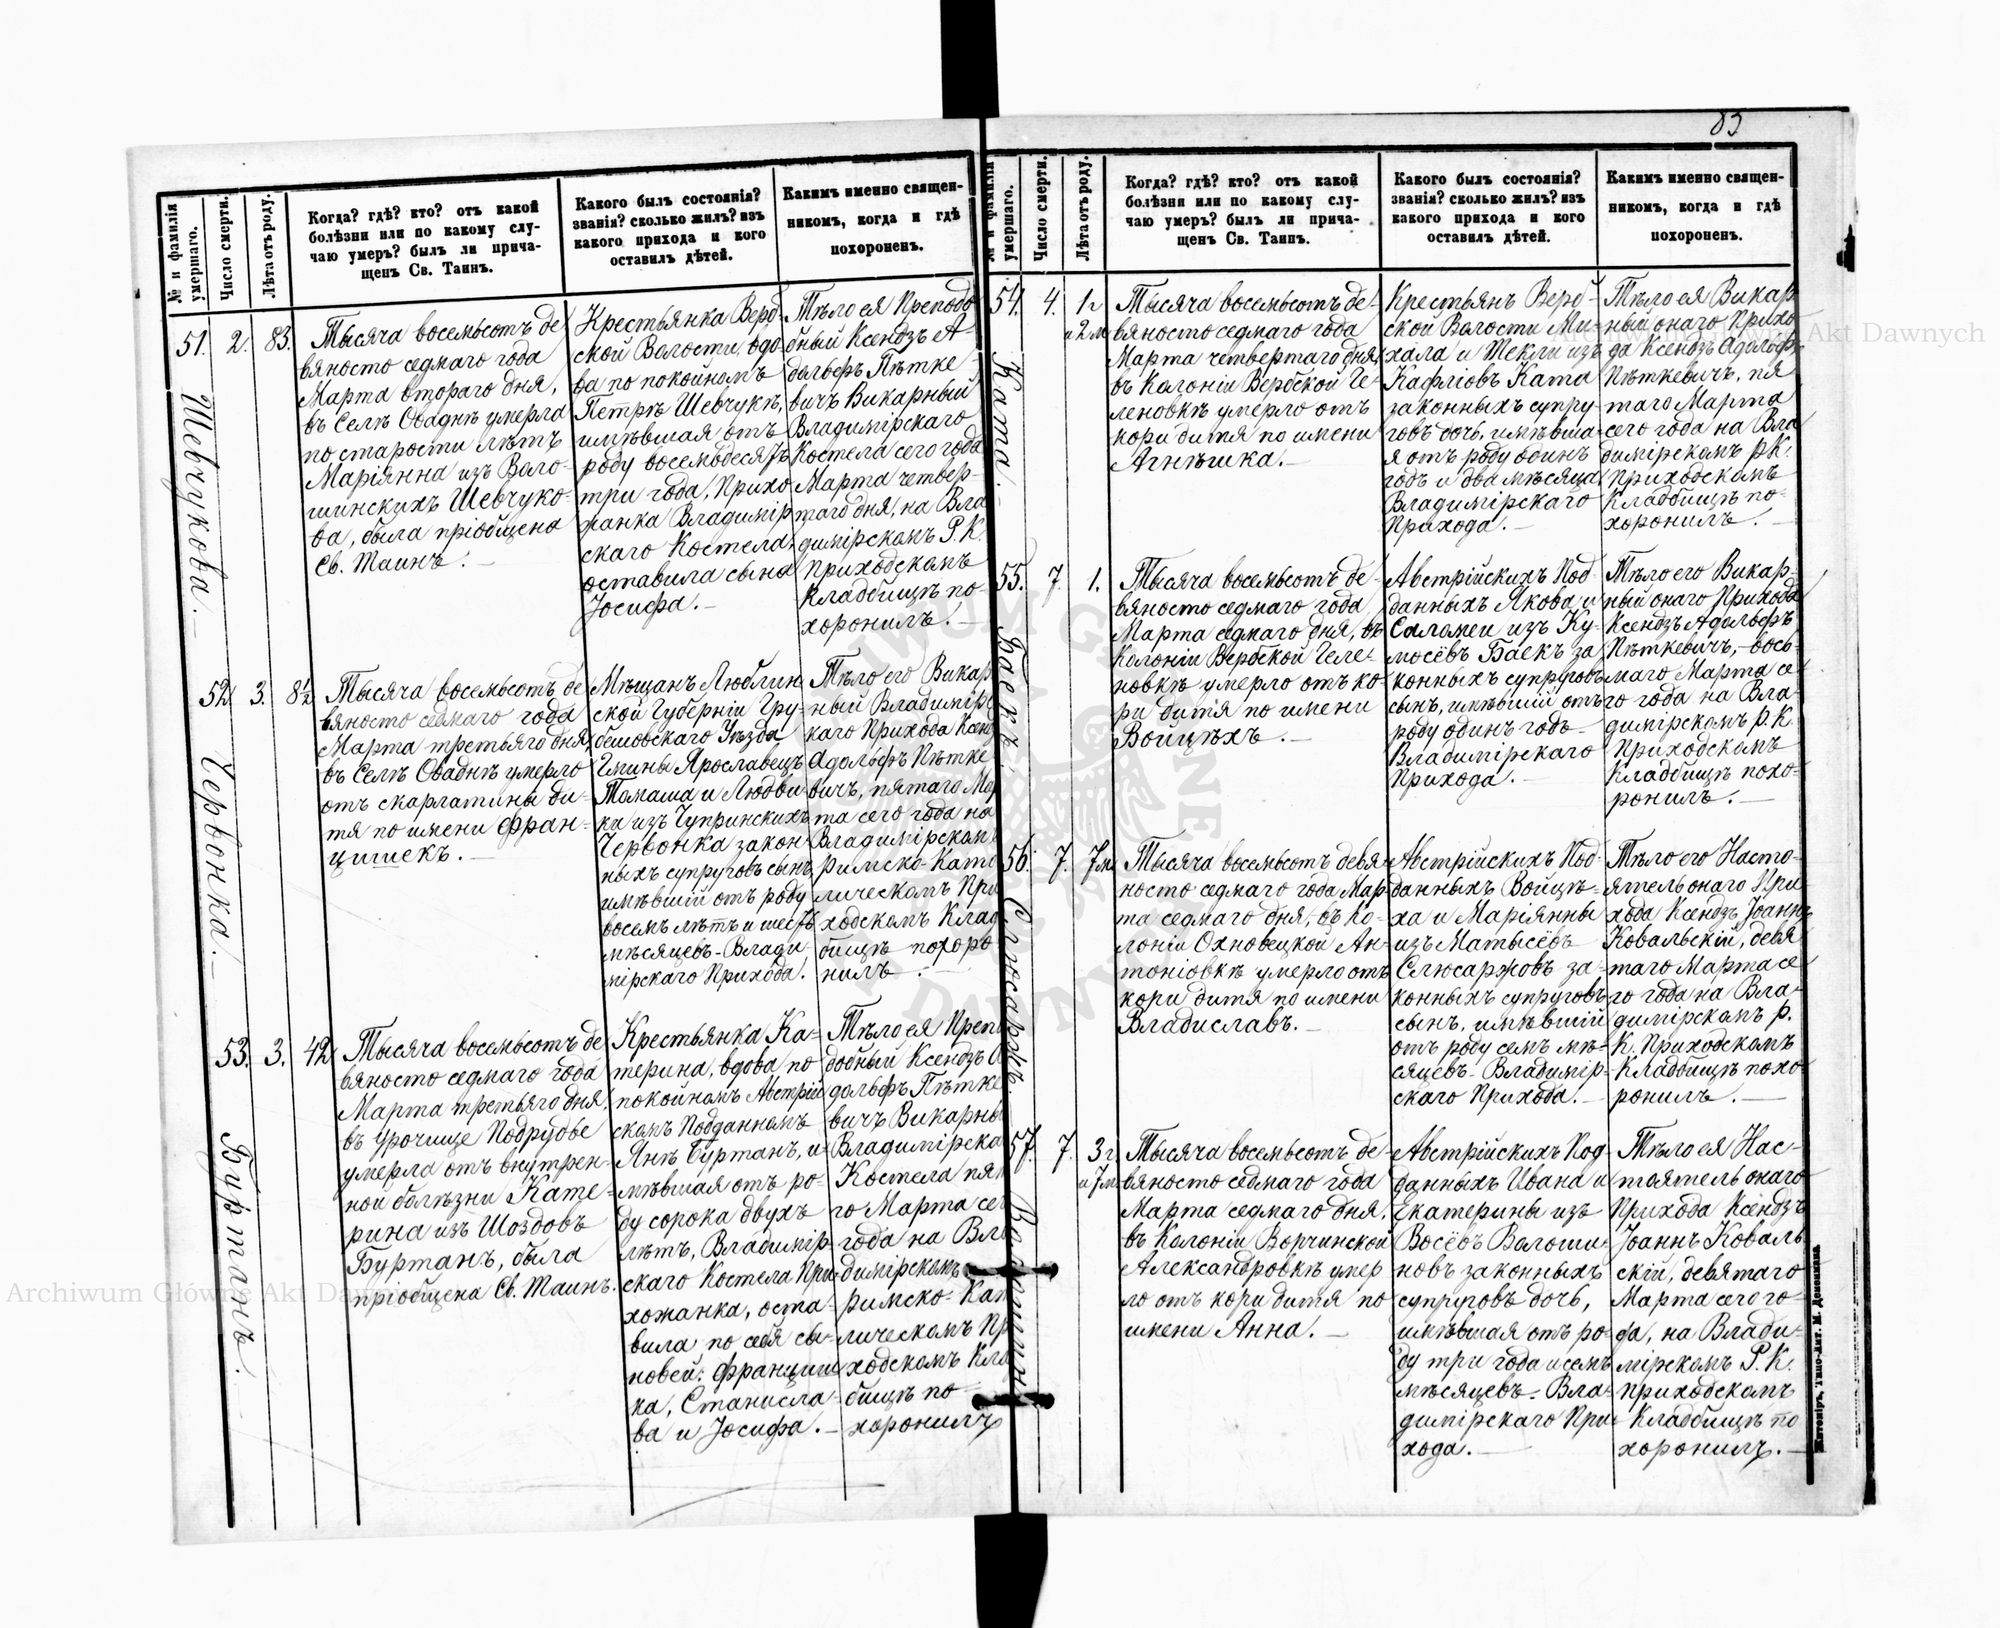 83
№ и фамилія умершаго.
Число смерти.
Лѣта отъ роду.
Когда? гдѣ? кто? отъ какой
болѣзни или по какому слу-
чаю умеръ? былъ ли прича-
щенъ Св. Таинъ.
Какого былъ состоянія?
званія? сколько жилъ? изъ
какого прихода и кого
оставилъ дѣтей.
Какимъ именно священ-
никомъ, когда и гдѣ
похороненъ.
51.
Шевчукова.
2.
83.
Тысяча восемьсотъ де
вяносто седмаго года
Марта втораго дня,
въ Селѣ Оваднѣ умерла
по старости лѣтъ
Маріянна изъ Воло-
шинскихъ Шевчуко-
ва, была пріобщена
Св. Таинъ. —
Крестьянка Верб-
ской Волости, вдо
ва по покойномъ
Петрѣ Шевчукѣ,
имѣвшая отъ
роду восемьдесятъ
три года, Прихо
жанка Владимір
скаго Костела,
оставила сына
Іосифа. —
Тѣло ея Преподо
бный Ксендзъ А-
дольфъ Пѣтке
вичъ Викарный
Владимірскаго
Костела сего года
Марта четвер-
таго дня, на Вла
димірскомъ Р. К.
приходскомъ
кладбищѣ по-
хоронилъ. —
52.
Червонка.
3.
8½
Тысяча восемьсотъ де
вяносто седмаго года
Марта третьяго дня,
въ Селѣ Оваднѣ умерло
отъ скарлатины ди-
тя по имени Фран-
цишекъ. —
Мѣщанъ Люблин
ской Губерніи Гру-
бешовскаго Уѣзда
Гмины Ярославецъ
Томаша и Людви-
ка изъ Чупринскихъ
Червонка закон-
ныхъ супруговъ сынъ
имѣвшій отъ роду
восемь лѣтъ и шесть
мѣсяцевъ-Влади
мірскаго Прихода.
Тѣло его Викар
ный Владимірс
каго Прихода Ксенд
Адольфъ Пѣтке
вичъ, пятаго Мар
та сего года на
Владимірскомъ
Римско-Като
лическомъ При
ходскомъ Клад
бищѣ похоро
нилъ. —
53.
Буртанъ.
3.
42
Тысяча восемьсотъ де
вяносто седмаго года
Марта третьяго дня,
въ урочище Подрудье
умерла отъ внутрен-
ной болѣзни Кате-
рина изъ Шоздовъ
Буртанъ, была
пріобщена Св. Таинъ.
Крестьянка Ка-
терина, вдова по
покойномъ Австрій
скомъ Подданномъ
Янѣ Буртанъ, и-
мѣвшая отъ ро-
ду сорока двухъ
лѣтъ, Владимір-
скаго Костела При-
хожанка, оста-
вила по себѣ сы-
новей: Францишк
ка, Станисла-
ва и Іосифа. —
Тѣло ея Препо
добный Ксендзъ А
дольфъ Пѣтке
вичъ Викарны
Владимірска
Костела пят
го Марта се
года на Вла
димірскомъ
Римско-Кат
лическомъ Пр
ходскомъ Кла
бищѣ по-
хоронилъ
№ и фамилія умершаго.
Число смерти.
Лѣта отъ роду.
Когда? гдѣ? кто? отъ какой
болѣзни или по какому слу-
чаю умеръ? былъ ли прича-
щенъ Св. Таинъ.
Какого былъ состоянія?
званія? сколько жилъ? изъ
какого прихода и кого
оставилъ дѣтей.
Какимъ именно священ-
никомъ, когда и гдѣ
похороненъ.
54.
Ката.
4.
1 г
и 2 м.
Тысяча восемьсотъ де-
вяносто седмаго года
Марта четвертаго дня,
въ Колоніи Вербской Ге-
леновкѣ умерло отъ
кори дитя по имени
Агнѣшка. —
Крестьянъ Верб-
ской Волости Ми-
хала и Текли изъ
Кафліовъ Ката
законныхъ супру-
говъ дочь, имѣвша-
я отъ роду одинъ
годъ и два мѣсяца
Владимірскаго
Прихода. —
Тѣло ея Викар
ный онаго Прихо-
да Ксендзъ Адольфъ
Пѣткевичъ, пя
таго Марта
сего года на Вла
димірскомъ Р.К.
Приходскомъ
Кладбищѣ по-
хоронилъ. —
55.
Баекъ.
7.
1.
Тысяча восемьсотъ де-
вяносто седмаго года
Марта седмаго дня, въ
Колоніи Вербской Геле-
новкѣ умерло отъ ко-
ри дитя по имени
Войцѣхъ. —
Австрійскихъ Под
данныхъ Якова и
Саломеи изъ Ку-
мосёвъ Баекъ за-
конныхъ супруговъ
сынъ, имѣвшій отъ
роду одинъ годъ-
Владимірскаго
Прихода. —
Тѣло его Викар-
ный онаго Прихода
Ксендзъ Адольфъ
Пѣткевичъ,-вось-
маго Марта се-
го года на Вла-
димірскомъ Р. К.
Приходскомъ
Кладбищѣ похо-
ронилъ. —
56.
Слюсаржъ.
7.
7 м.
Тысяча восемьсотъ девя-
носто седмаго года Мар-
та седмаго дня, въ Ко-
лоніи Охновецкой Ан-
тоніовкѣ умерло отъ
кори дитя по имени
Владиславъ. —
Австрійскихъ Под-
данныхъ Войцѣ-
ха и Маріянны
изъ Матысёвъ
Слюсаржовъ за-
конныхъ супруговъ
сынъ, имѣвшій
отъ роду семь мѣ-
сяцевъ-Владимір-
скаго Прихода. —
Тѣло его Насто-
ятель онаго При-
хода Ксендзъ Іоаннъ
Ковальскій, девя
таго Марта се
го года на Вла-
димірскомъ Р.
К. Приходскомъ
Кладбищѣ похо-
ронилъ. —
57.
7.
3 г
и 7 м
Тысяча восемьсотъ де-
вяносто седмаго года
Марта седмаго дня,
въ Колоніи Ворчинской
Александровкѣ умер
ло отъ кори дитя по
имени Анна. —
Австрійскихъ Под
данныхъ Ивана и
Екатерины изъ
Восёвъ Волоши-
новъ законныхъ
супруговъ дочь,
имѣвшая отъ ро-
ду три года и семь
мѣсяцевъ-Вла-
димірскаго При-
хода. —
Тѣло ея Нас-
тоятель онаго
Прихода Ксендзъ
Іоаннъ Коваль
скій, девятаго
Марта сего го-
да, на Влади-
мірскомъ Р. К.
Приходскомъ
Кладбищѣ по
хоронилъ. —
Житоміръ, Типо-Лит. М. Дененмана.
Archiwum Główne Akt Dawnych
Archiwum Główne Akt Dawnych